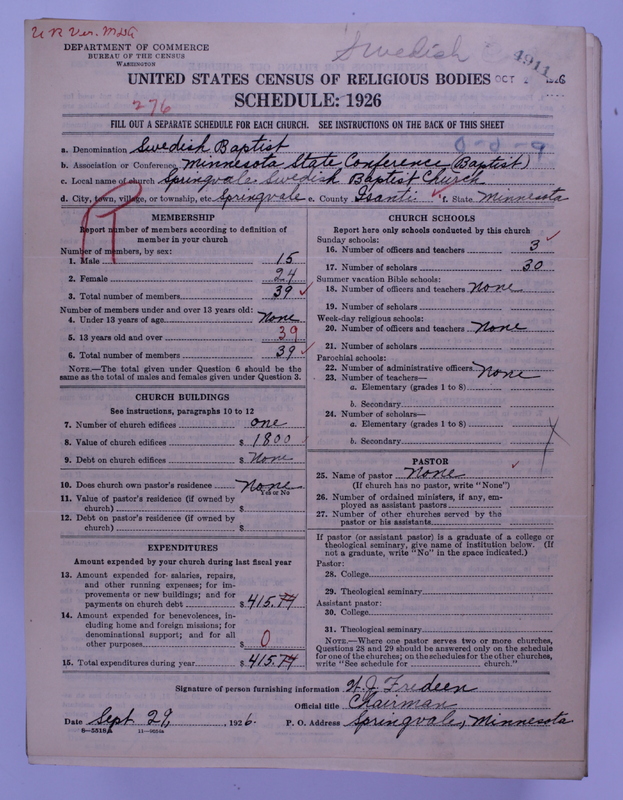 U R Ver. MDG
DEPARTMENT OF COMMERCE
BUREAU OF THE CENSUS
WASHINGTON
Swedish
1911
UNITED STATES CENSUS OF RELIGIOUS BODIES OCT
SCHEDULE: 1926
276
FILL OUT A SEPARATE SCHEDULE FOR EACH CHURCH. SEE INSTRUCTIONS ON THE BACK OF THIS SHEET
0-0-9
a. Denomination Swedish Baptist
b. Association or Conference Minnesota State Conference (Baptist)
c. Local name of church Springvale Swedish Baptist Church
d. City, town, village, or township, etc. Springvale e. County Isanti f. State Minnesota
R
MEMBERSHIP
Report number of members according to definition of
member in your church
Number of members, by sex:
1. Male 15
2. Female 24
3. Total number of members 39
Number of members under and over 13 years old:
4. Under 13 years of age None
5. 13 years old and over 39
6. Total number of members 39
NOTE.—The total given under Question 6 should be
same as the total of males and females given under Question 3.
CHURCH BUILDINGS
See instructions, paragraphs 10 to 12
7. Number of church edifices one
8. Value of church edifices $ 1800
9. Debt on church edifices $ None
10. Does church own pastor's residence None
Yes or No
11. Value of pastor's residence (if owned by
church) $
12. Debt on pastor's residence (if owned by
church) $
EXPENDITURES
Amount expended by your church during last fiscal year
13. Amount expended for salaries, repairs,
and other running expenses; for im-
provements or new buildings; and for
payments on church debt $ 415.74
14. Amount expended for benevolences, in-
cluding home and foreign missions; for
denominational support; and for all
other purposes $ 0
15. Total expenditures during year $ 415.74
CHURCH SCHOOLS
Report here only schools conducted by this church
Sunday schools:
16. Number of officers and teachers 3
17. Number of scholars 30
Summer vacation Bible schools:
18. Number of officers and teachers None
19. Number of scholars
Week-day religious schools:
20. Number of officers and teachers None
21. Number of scholars
Parochial schools:
22. Number of administrative officers None
23. Number of teachers—
a. Elementary (grades 1 to 8)
b. Secondary
24. Number of scholars—
a. Elementary (grades 1 to 8)
b. Secondary
PASTOR
25. Name of pastor None
(If church has no pastor, write "None")
26. Number of ordained ministers, if any, em-
ployed as assistant pastors
27. Number of other churches served by the
pastor or his assistants
If pastor (or assistant pastor) is a graduate of a college or
theological seminary, give name of institution below. (If
not a graduate, write "No" in the space indicated.)
Pastor:
28. College
29. Theological seminary
Assistant pastor:
30. College
31. Theological seminary
NOTE.—Where one pastor serves two or more churches,
Questions 28 and 29 should be answered only on the schedule
for one of the churches; on the schedules for the other churches,
write "See schedule for church."
Signature of person furnishing information W. J. Fredeen
Official title Chairman
Date Sept 29, 1926. P. O. Address Springvale, Minnesota
8—5518A